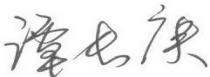 谭长庚